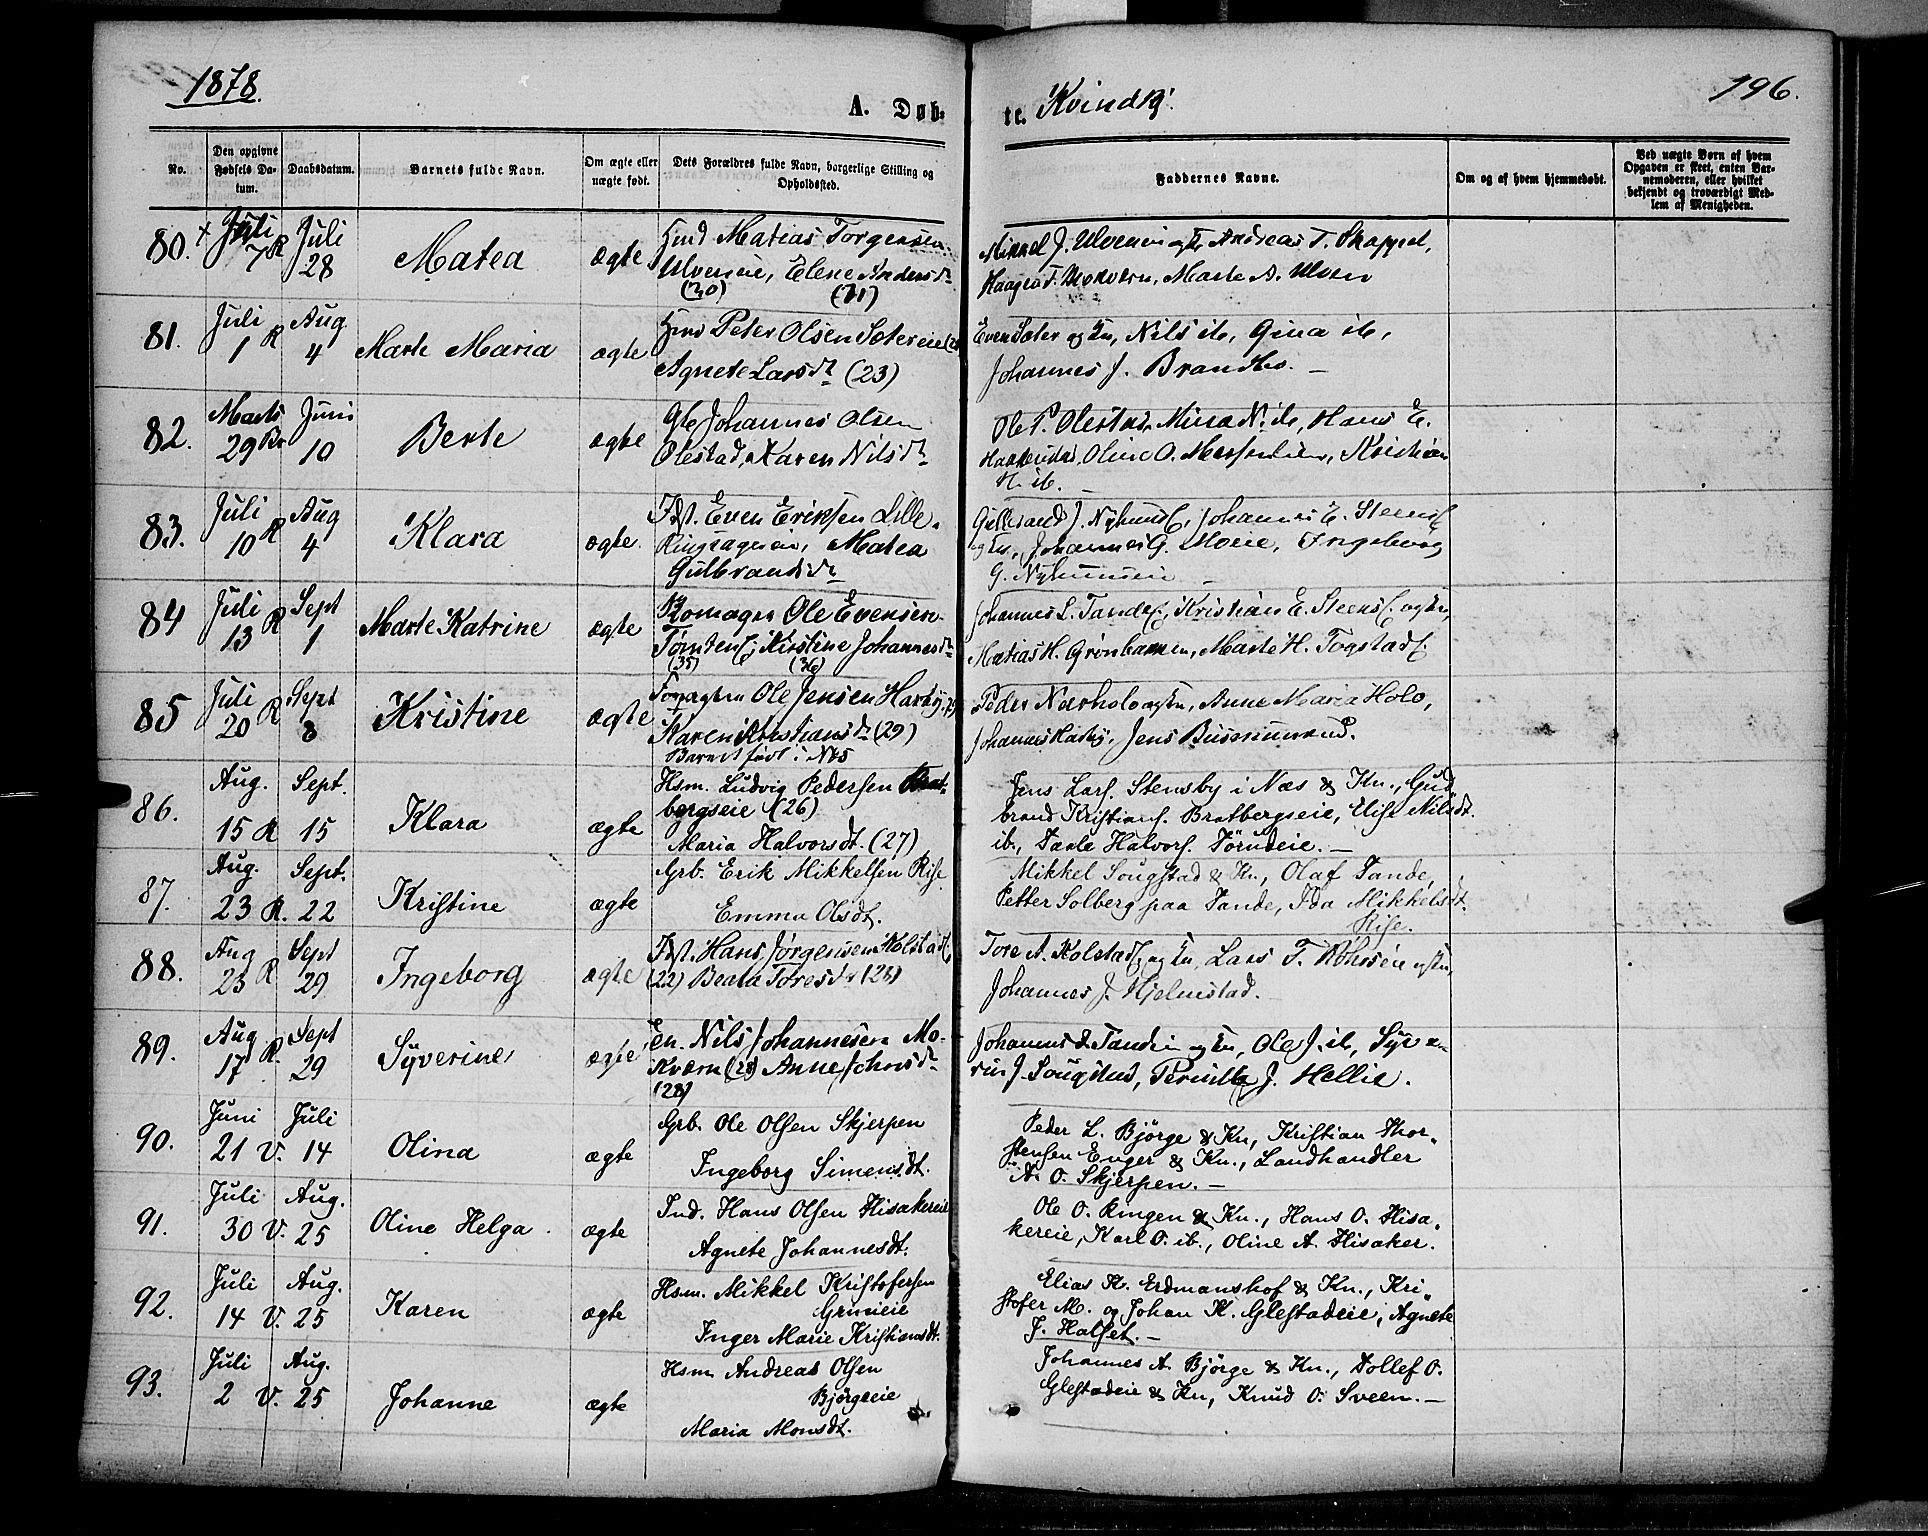 1878.
A. Døb-
te. Kvindkj.
196.
No.
Den opgivne
Fødsels Da-
tum.
Daabsdatum.
Barnets fulde Navn.
Om ægte eller
uægte født.
Dets Forældres fulde Navn, borgerlige Stilling og
Opholdssted.
Faddernes Navne.
Om og af hvem hjemmedøbt.
Ved uægte Børn af hvem
Opgaven er skeet, enten Bar-
nemoderen, eller hvilket
bekjendt og troværdigt Med-
lem af Menigheden.
80. x Juli 7 R Juli 28 Matea ægte
Matias Torgersen
Ulverneie, Elene Anders dr
(30)
Mikkel J. Ulverneie og Kn Andreas T. Skappel,
Marte A. Ulven
81. Juli 1 R Aug. 4 Marte Maria ægte
Peter Olsen Sætereie
Agnete Lars dr (23)
Even Sæter og Kn, Nils ib, Gina ib,
Johannes J. Brandbo. —
82. Marts 29 Br Juni 10 Berte ægte
Gb Johannes Olsen
Olestad, Karen Nils dr
Ole P. Olestad, Mina N. ib, Hans E.
Oline O. Kristian
H. ib. —
83. Juli 10 R Aug 4 Klara ægte.
Ind. Even Eriksen Lille-
Ringsagereie, Matea
Gulbrands dr
Gulbrand J. Nylund, Johannes E. Steens
og Kn, Johannes G. Moeie, Ingeborg
G. Nylundseie —
84 Juli 13 R Sept 1 Marte Katrine ægte
Ole Evensen
Tømten, Kirstine Johannes dr
(35) (36)
Johannes L. Tande, Kristian E. Steens og Kn,
Matias H. Grønhammeren, Marte H. Togstad
85 Juli 20 R Sept 8 Kristine ægte
Forpagter Ole Jensen Harby
Karen Kristians dr (29)
Barnet født i Næs
Peder Nærholo og Kn, Anne Maria Holo,
Johannes Harby, Jens Busmunrud.
86. Aug. 15 R Sept. 15 Klara ægte
Hsm. Ludvig Pedersen Brat-
bergseie (26)
Maria Halvorsdt. (27)
Jens Lars. Stensby i Næs & Kn., Gud
brand Kristians. Bratbergseie, Elise Nilsdt.
ib., Paale Halvors. Pörudeie. —
87. Aug. 23 R. Sept. 22 Kristine ægte
Grb. Erik Mikkelsen Rise
Emma Olsdt.
Mikkel Sougstad & Kn., Olaf Tande,
Petter Solberg paa Tande, Ida Mikkelsdt.
Rise.
88. Aug 23 R Sept 29 Ingeborg ægte
Ind. Hans Jørgensen Kolstad
(22) Beata Tores dr
Tore A. Kolstad og Kn, Lars T. og Kn,
Johannes J. Hjelmstad. —
89. Aug 17 R. Sept 29 Syverine ægte
Nils Johannesen Mo-
kværn (28) Anne Johns dr
(28)
Johannes Tande og Kn, Ole J. ib, Syve-
rin J. Sougstad, Pernille J. Hellie.
90. Juni 21 V. Juli 14 Olina ægte
Grb. Ole Olsen Skjerpen
Ingeborg Simensdt.
Peder L. Björge & Kn., Kristian Thor-
stensen Enger & Kn., Landhandler
A. O. Skjerpen. —
91. Juli 30 V. Aug. 25 Oline Helga ægte
Ind. Hans Olsen Hisakereie
Agnete Johannesdt.
Ole O. Ringen & Kn., Hans O. Hisa-
kereie, Karl O. ib., Oline A. Hisaker.
92. Juli 14 V. Aug. 25 Karen ægte
Hsm. Mikkel Kristofersen
Grueeie
Inger Marie Kristiansdt.
Elias K. Erdmanshof & Kn., Kri-
stofer M. og Johan K. Glestadeie, Agnete
J. Halset. —
93. Juli 2 V. Aug. 25 Johanne ægte
Hsm. Andreas Olsen
Björgeeie
Maria Monsdt.
Johannes A. Björge & Kn., Tollef O.
Glestadeie & Kn, Knud O. Sveen. —